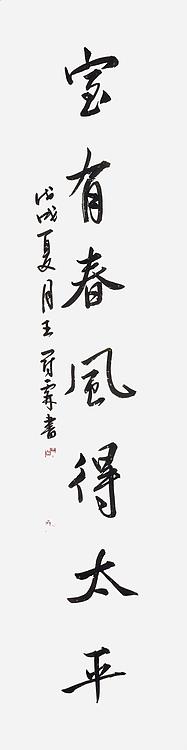 室有春風得太平
戊戌夏月王冠霖書